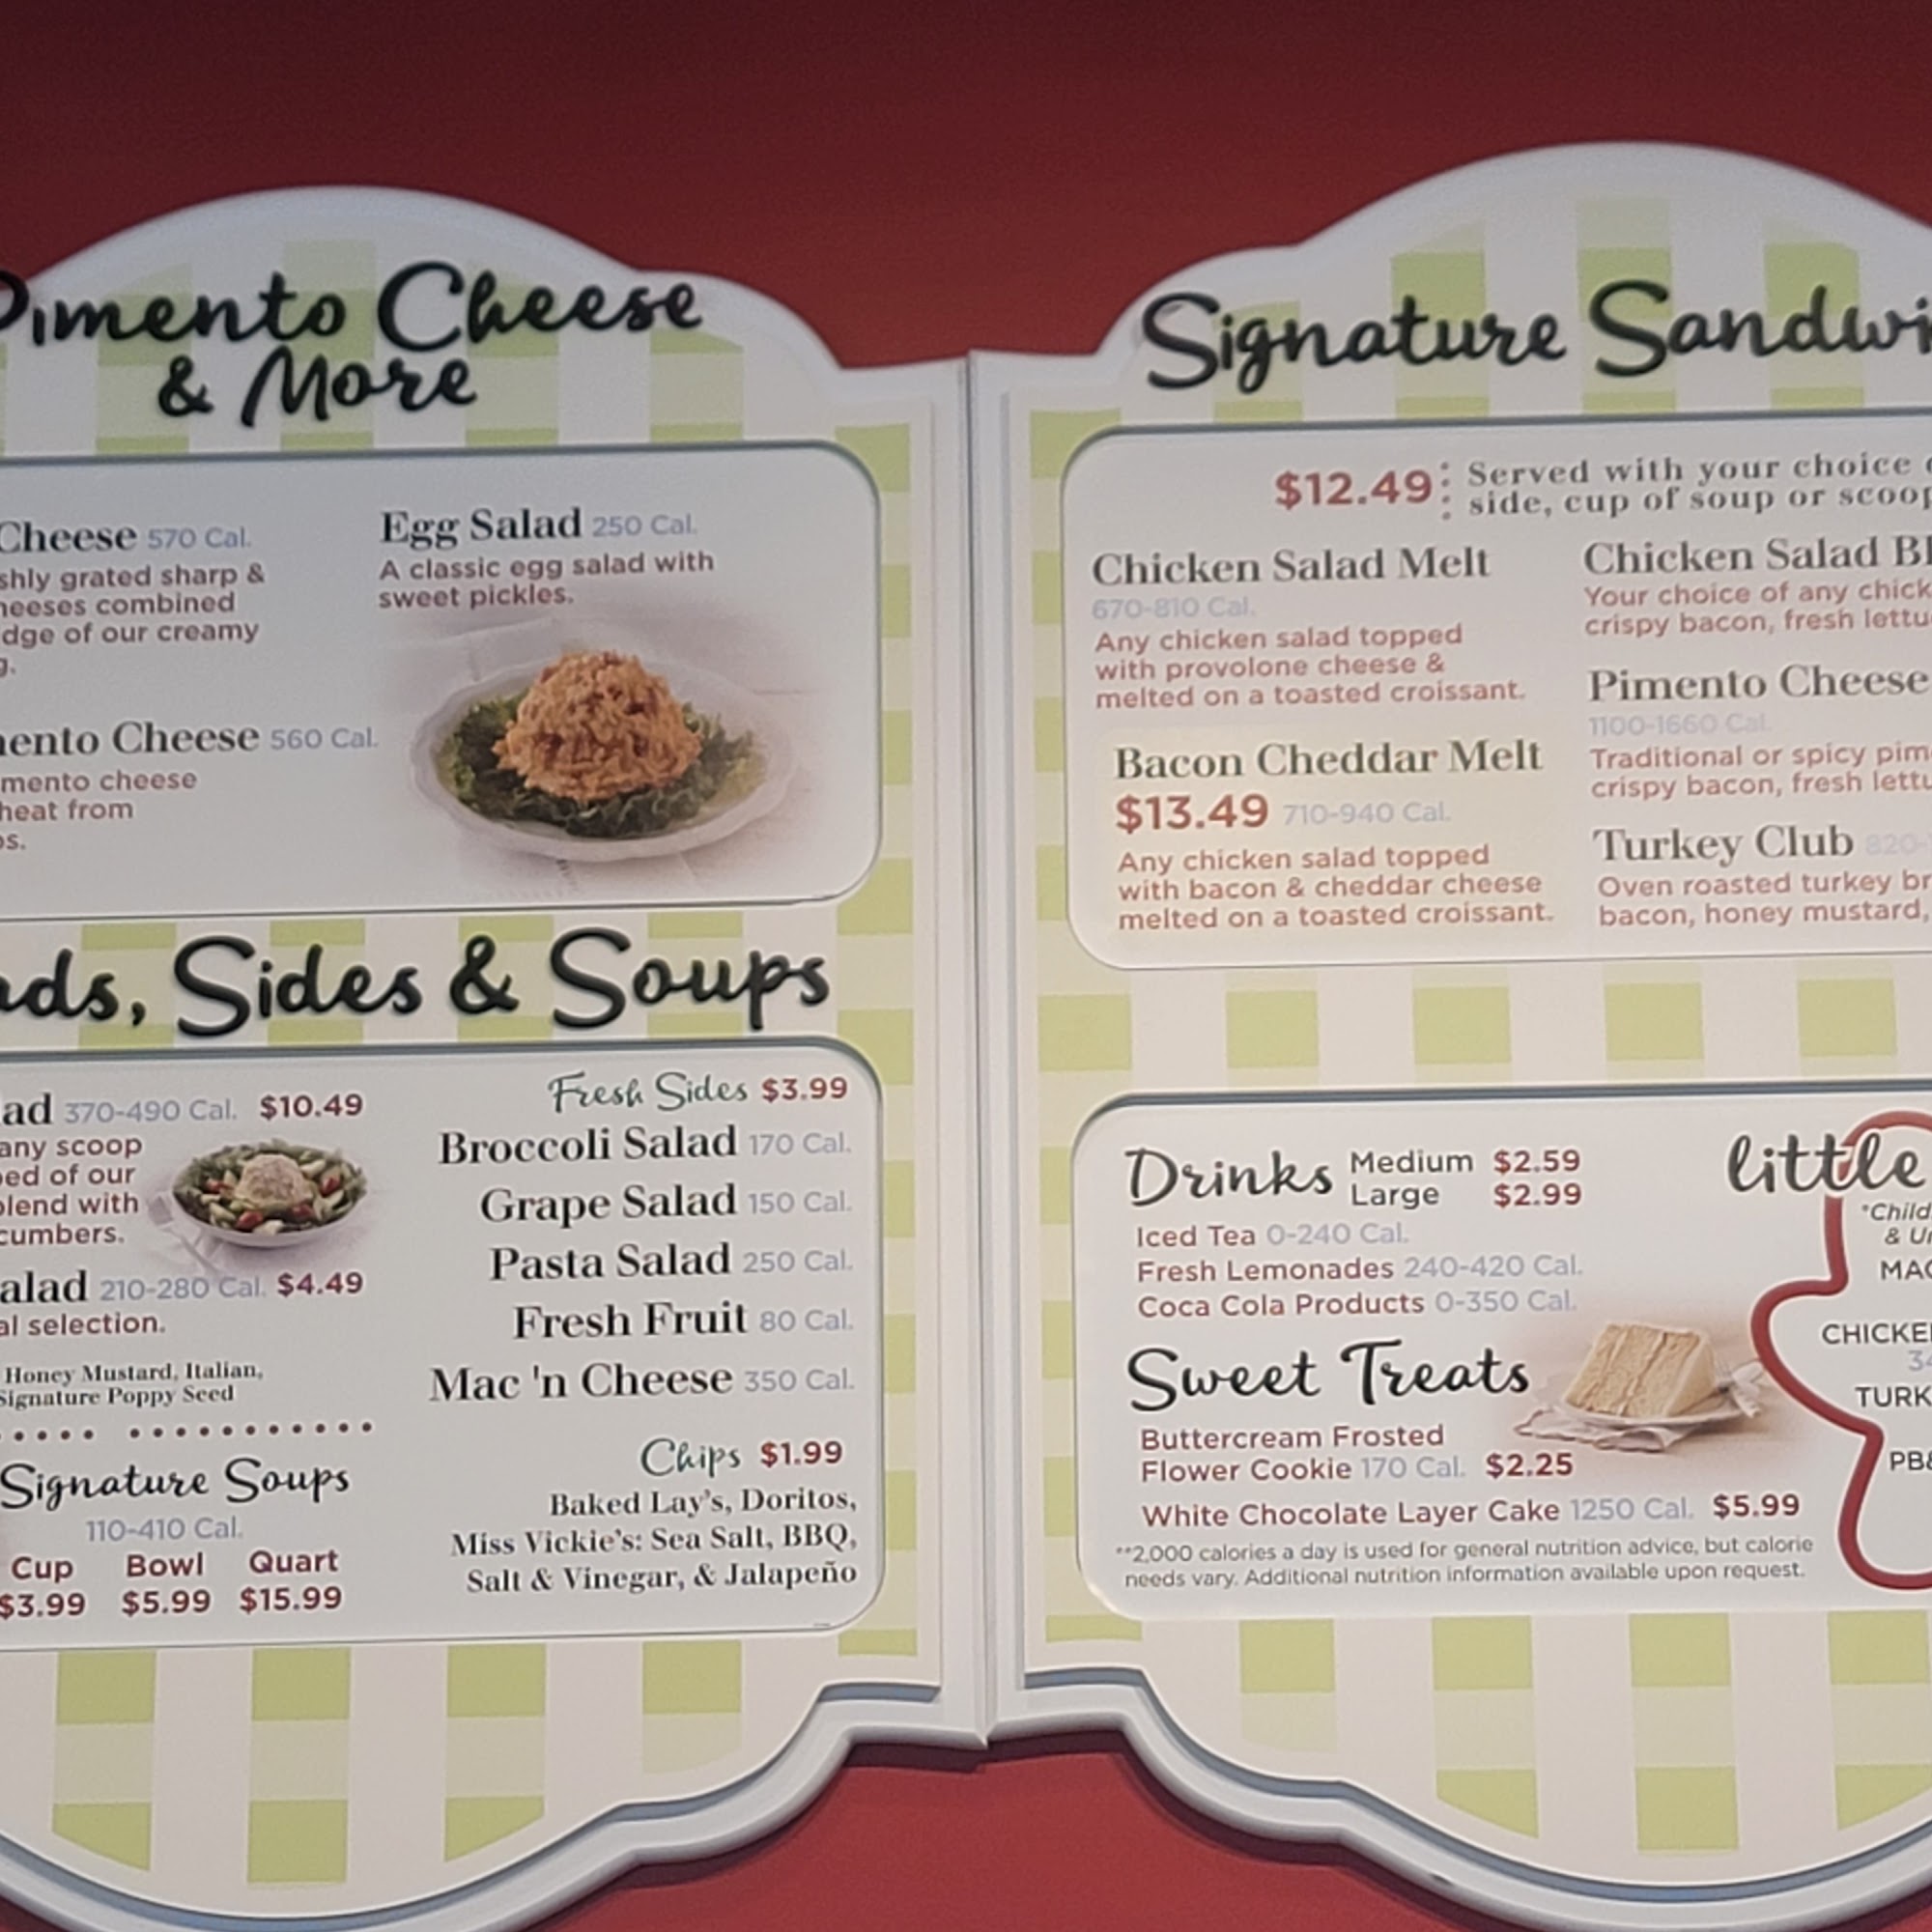 Pimento Cheese
& More
Cheese 570 Cal.
shly grated sharp &
heeses combined
dge of our creamy
g.
Egg Salad 250 Cal.
A classic egg salad with
sweet pickles.
mento Cheese 560 Cal.
mento cheese
heat from
os.
ads, Sides & Soups
lad 370-490 Cal. $10.49
any scoop
ped of our
blend with
cumbers.
alad 210-280 Cal. $4.49
al selection.
Honey Mustard, Italian,
Signature Poppy Seed
Signature Soups
110-410 Cal.
Cup Bowl Quart
$3.99 $5.99 $15.99
Fresh Sides $3.99
Broccoli Salad 170 Cal.
Grape Salad 150 Cal.
Pasta Salad 250 Cal.
Fresh Fruit 80 Cal.
Mac 'n Cheese 350 Cal.
Chips $1.99
Baked Lay's, Doritos,
Miss Vickie's: Sea Salt, BBQ,
Salt & Vinegar, & Jalapeño
Signature Sandwi
$12.49 Served with your choice o
side, cup of soup or scoop
Chicken Salad Melt
670-810 Cal.
Any chicken salad topped
with provolone cheese &
melted on a toasted croissant.
Bacon Cheddar Melt
$13.49 710-940 Cal.
Any chicken salad topped
with bacon & cheddar cheese
melted on a toasted croissant.
Chicken Salad BL
Your choice of any chick
crispy bacon, fresh lettu
Pimento Cheese
1100-1660 Cal.
Traditional or spicy pim
crispy bacon, fresh lettu
Turkey Club 820-
Oven roasted turkey br
bacon, honey mustard,
Drinks Medium $2.59
Large $2.99
Iced Tea 0-240 Cal.
Fresh Lemonades 240-420 Cal.
Coca Cola Products 0-350 Cal.
Sweet Treats
Buttercream Frosted
Flower Cookie 170 Cal. $2.25
White Chocolate Layer Cake 1250 Cal. $5.99
**2,000 calories a day is used for general nutrition advice, but calorie
needs vary. Additional nutrition information available upon request.
little
*Child
& Un
MAC
CHICKEN
34
TURK
PB&